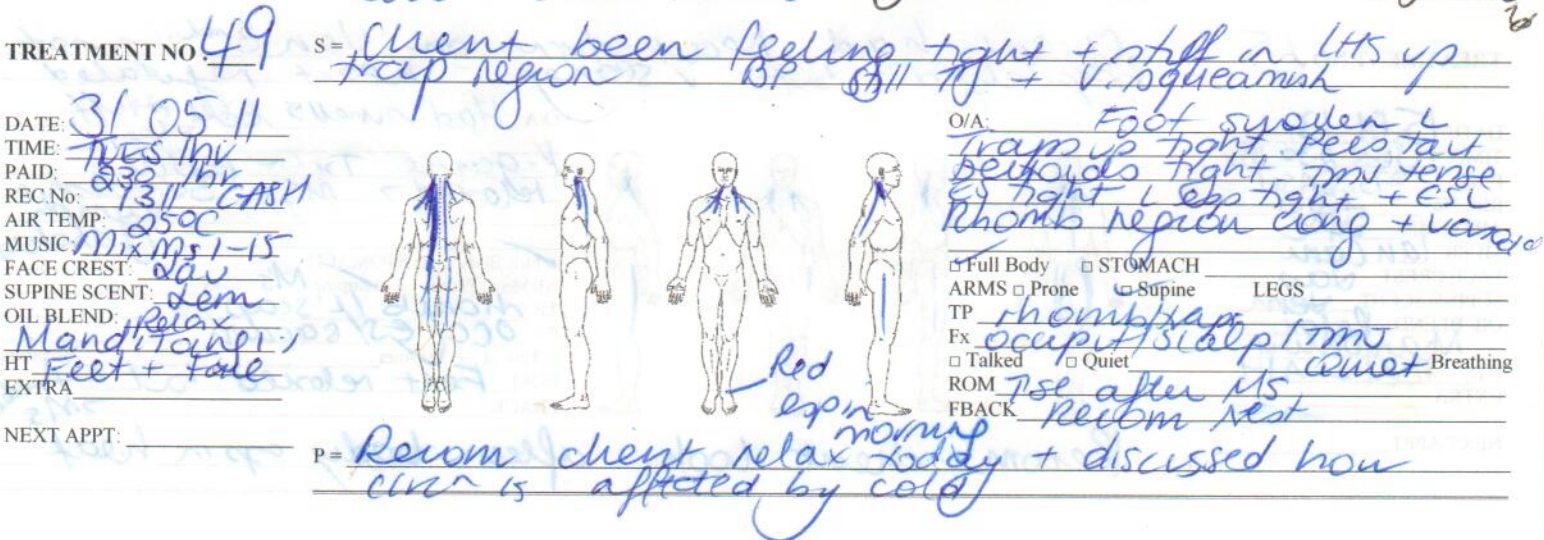 TREATMENT NO: 49
S = Client been feeling tight + stiff in LHS up
trap region BP still + V. squeamish
DATE: 31 05 11
TIME: TUES 1hr
PAID: 230 1hr
REC.No: 1311 CASH
AIR TEMP: 25°C
MUSIC: Mix Ms 1-15
FACE CREST: Lav
SUPINE SCENT: Lem
OIL BLEND: Relax
Mand, Tangi,
HT Feet + Face
EXTRA
NEXT APPT:
O/A: Foot swollen L
Traps up tight Pecs taut
Deltoids tight TMJ tense
ES tight Legs tight + ESL
Rhomb region cong +
□ Full Body □ STOMACH
ARMS □ Prone □ Supine LEGS
TP rhomb/traps
Fx occiput/scalp/TMJ
□ Talked □ Quiet Quiet Breathing
ROM Tse after Ms
FBACK Recom Rest
Red
esp in
morning
P = Recom client relax today + discussed how
circn is affected by cold